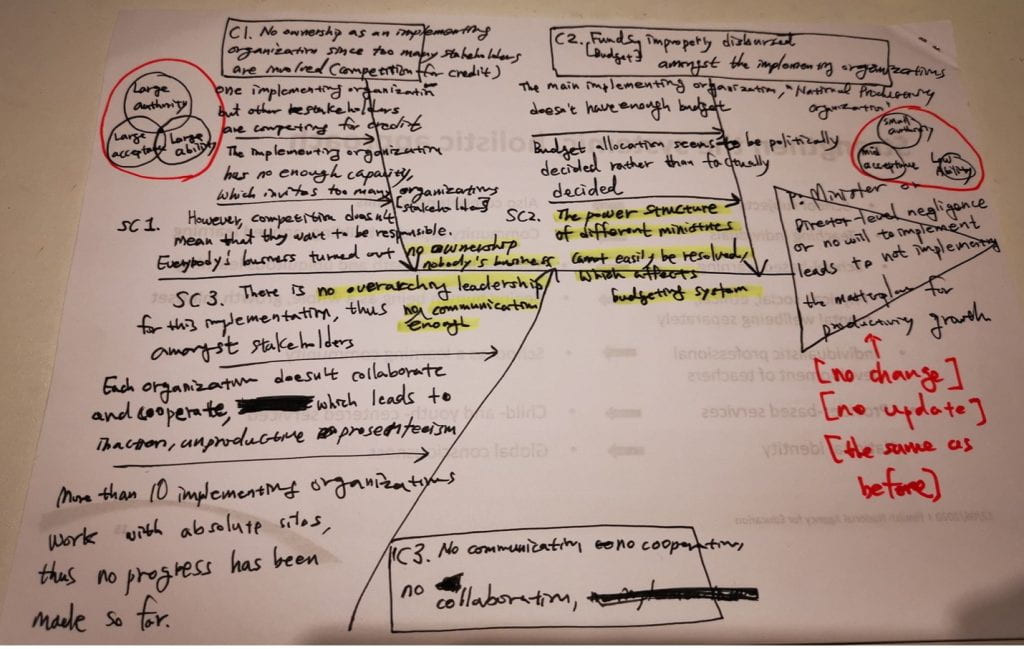 C1. No ownership as an implementing
organization since too many stakeholders
are involved (competition for credit)
Large
authority
Large
acceptance
Large
ability
one implementing organization
but other stakeholders
are competing for credit
The implementing organization
has no enough capacity,
which invites too many organizations
[stakeholders]
SC1. However, competition doesn't
mean that they want to be responsible.
Everybody's business turned out no ownership
nobody's business
C2. Funds improperly disbursed
[Budget]
amongst the implementing organizations
The main implementing organization, "National Productivity
organization"
doesn't have enough budget
Budget allocation seems to be politically
decided rather than factually
decided
SC2. The power structure
of different ministries
cannot easily be resolved,
which affects
budgeting system
small
authority
mid
acceptance
Low
Ability
P. Minister or
Director-level negligence
or no will to implement
leads to not implementing
the masterplan for
productivity growth
[no change]
[no update]
[the same as
before]
SC3. There is no overarching leadership
for this implementation, thus no communication
enough
amongst stakeholders
Each organization doesn't collaborate
and cooperate, which leads to
inaction, unproductive presenteeism
More than 10 implementing organizations
work with absolute silos,
thus no progress has been
made so far.
C3. No communication no cooperation,
no collaboration,
holistic
wellbeing separately
Individualistic professional
development of teachers
-based services
Identity
Child- and youth- centered services
Global consciousness
National Agency for Education